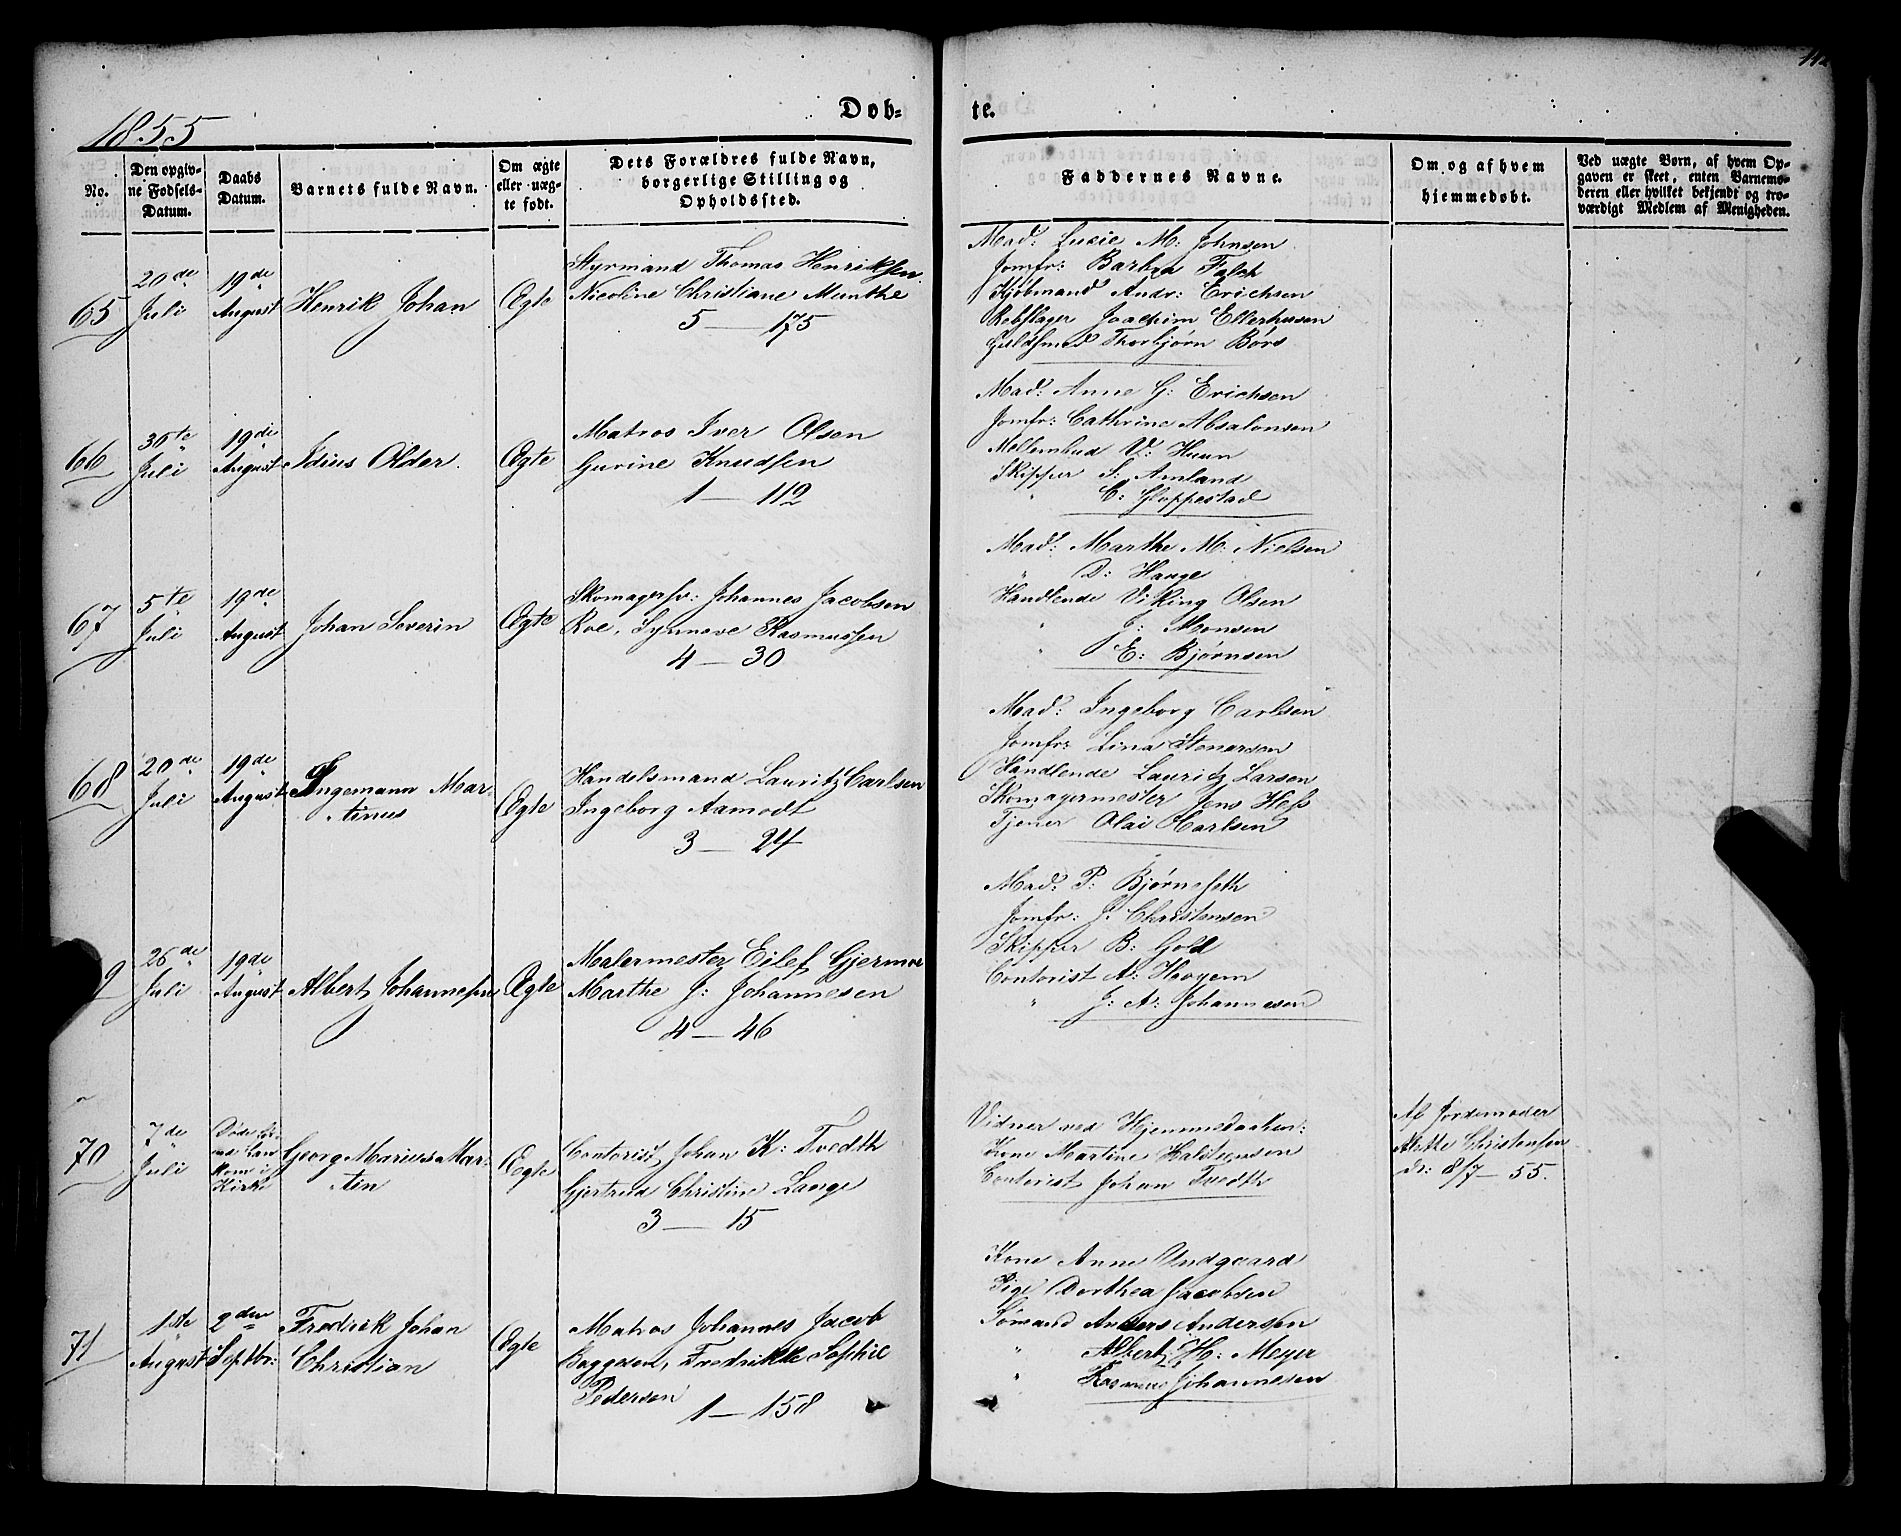 1855
Døb=
te.
No.
Den opgiv-
ne Fødsels-
Datum.
Daabs
Datum.
Barnets fulde Navn.
Om ægte
eller uæg-
te født.
Dets Forældres fulde Navn,
borgerlige Stilling og
Opholdssted.
Faddernes Navne.
Om og af hvem
hjemmedøbt.
Ved uægte Børn, af hvem Op-
gaven er skeet, enten Barnemo-
deren eller hvilket bekjendt og tro-
værdigt Medlem af Menigheden.
65
20de
Juli
19de
August
Henrik Johan
Ægte
Styrmand Thomas Henriksen
Nicoline Christiane Munthe
5 — 175
Mad: Lucie M: Johnsen
Jomfr: Barbra Falch
Kjøbmand Andr: Erichsen
Rebslager Joachim Ellerhusen
Guldsmed Thorbjørn Bors
66
30te
Juli
19de
August
Idius Older.
Ægte
Matros Iver Olsen
Gurine Knudsen
1 — 112
Mad: Anne G: Erichsen
Jomfr: Cathrine Absalonsen
Mellembud V: Huun
Skipper S: Amland
" C: Gloppestad
67
5te
Juli
19de
August
Johan Severin
Ægte
Skomagersv: Johannes Jacobsen
Roe, Synneve Rasmussen
4 — 30
Mad: Marthe M: Nielsen
" D: Hauge
Handlende Viking Olsen
" J: Monsen
" E: Bjørnsen
68
20de
Juli
19de
August
Ingemann Mar-
tinus
Ægte
Handelsmand Lauritz Carlsen
Ingeborg Aamodt
3 — 24
Mad: Ingeborg Carlsen
Jomfr: Lina Stenersen
Handlende Lauritz Larsen
Skomagermester Jens Hess
Tjener Olai Carlsen
9
26de
Juli
19de
August
Albert Johannesen
Ægte
Malermester Eilef Gjermoe
Marthe J: Johannesen
4 — 46
Mad: P: Bjørneseth
Jomfr: J: Christensen
Skipper B: Gold
Contorist A: Hougem
" J: A: Johannesen
70
7de
Juli
Døde
Kirke
Georg Marius Mar-
tin
Ægte
Contorist Johan K: Tvedth
Gjertrud Christine Lange
3 — 15
Vidner ved Hjemmedaaben:
Kone Martine Haldensen
Contorist Johan Tvedth
Af Jordemoder
Mette Christensen
d: 8/7 — 55.
71
1ste
August
2den
Septbr:
Fredrik Johan
Christian
Ægte
Matros Johannes Jacob
Baggesen, Fredrikke Sophie
Pedersen
1 — 158
Kone Anne Undgaard
Pige Dorthea Jacobsen
Sømand Anders Andersen
" Albert H: Meyer
" Rasmus Johannesen